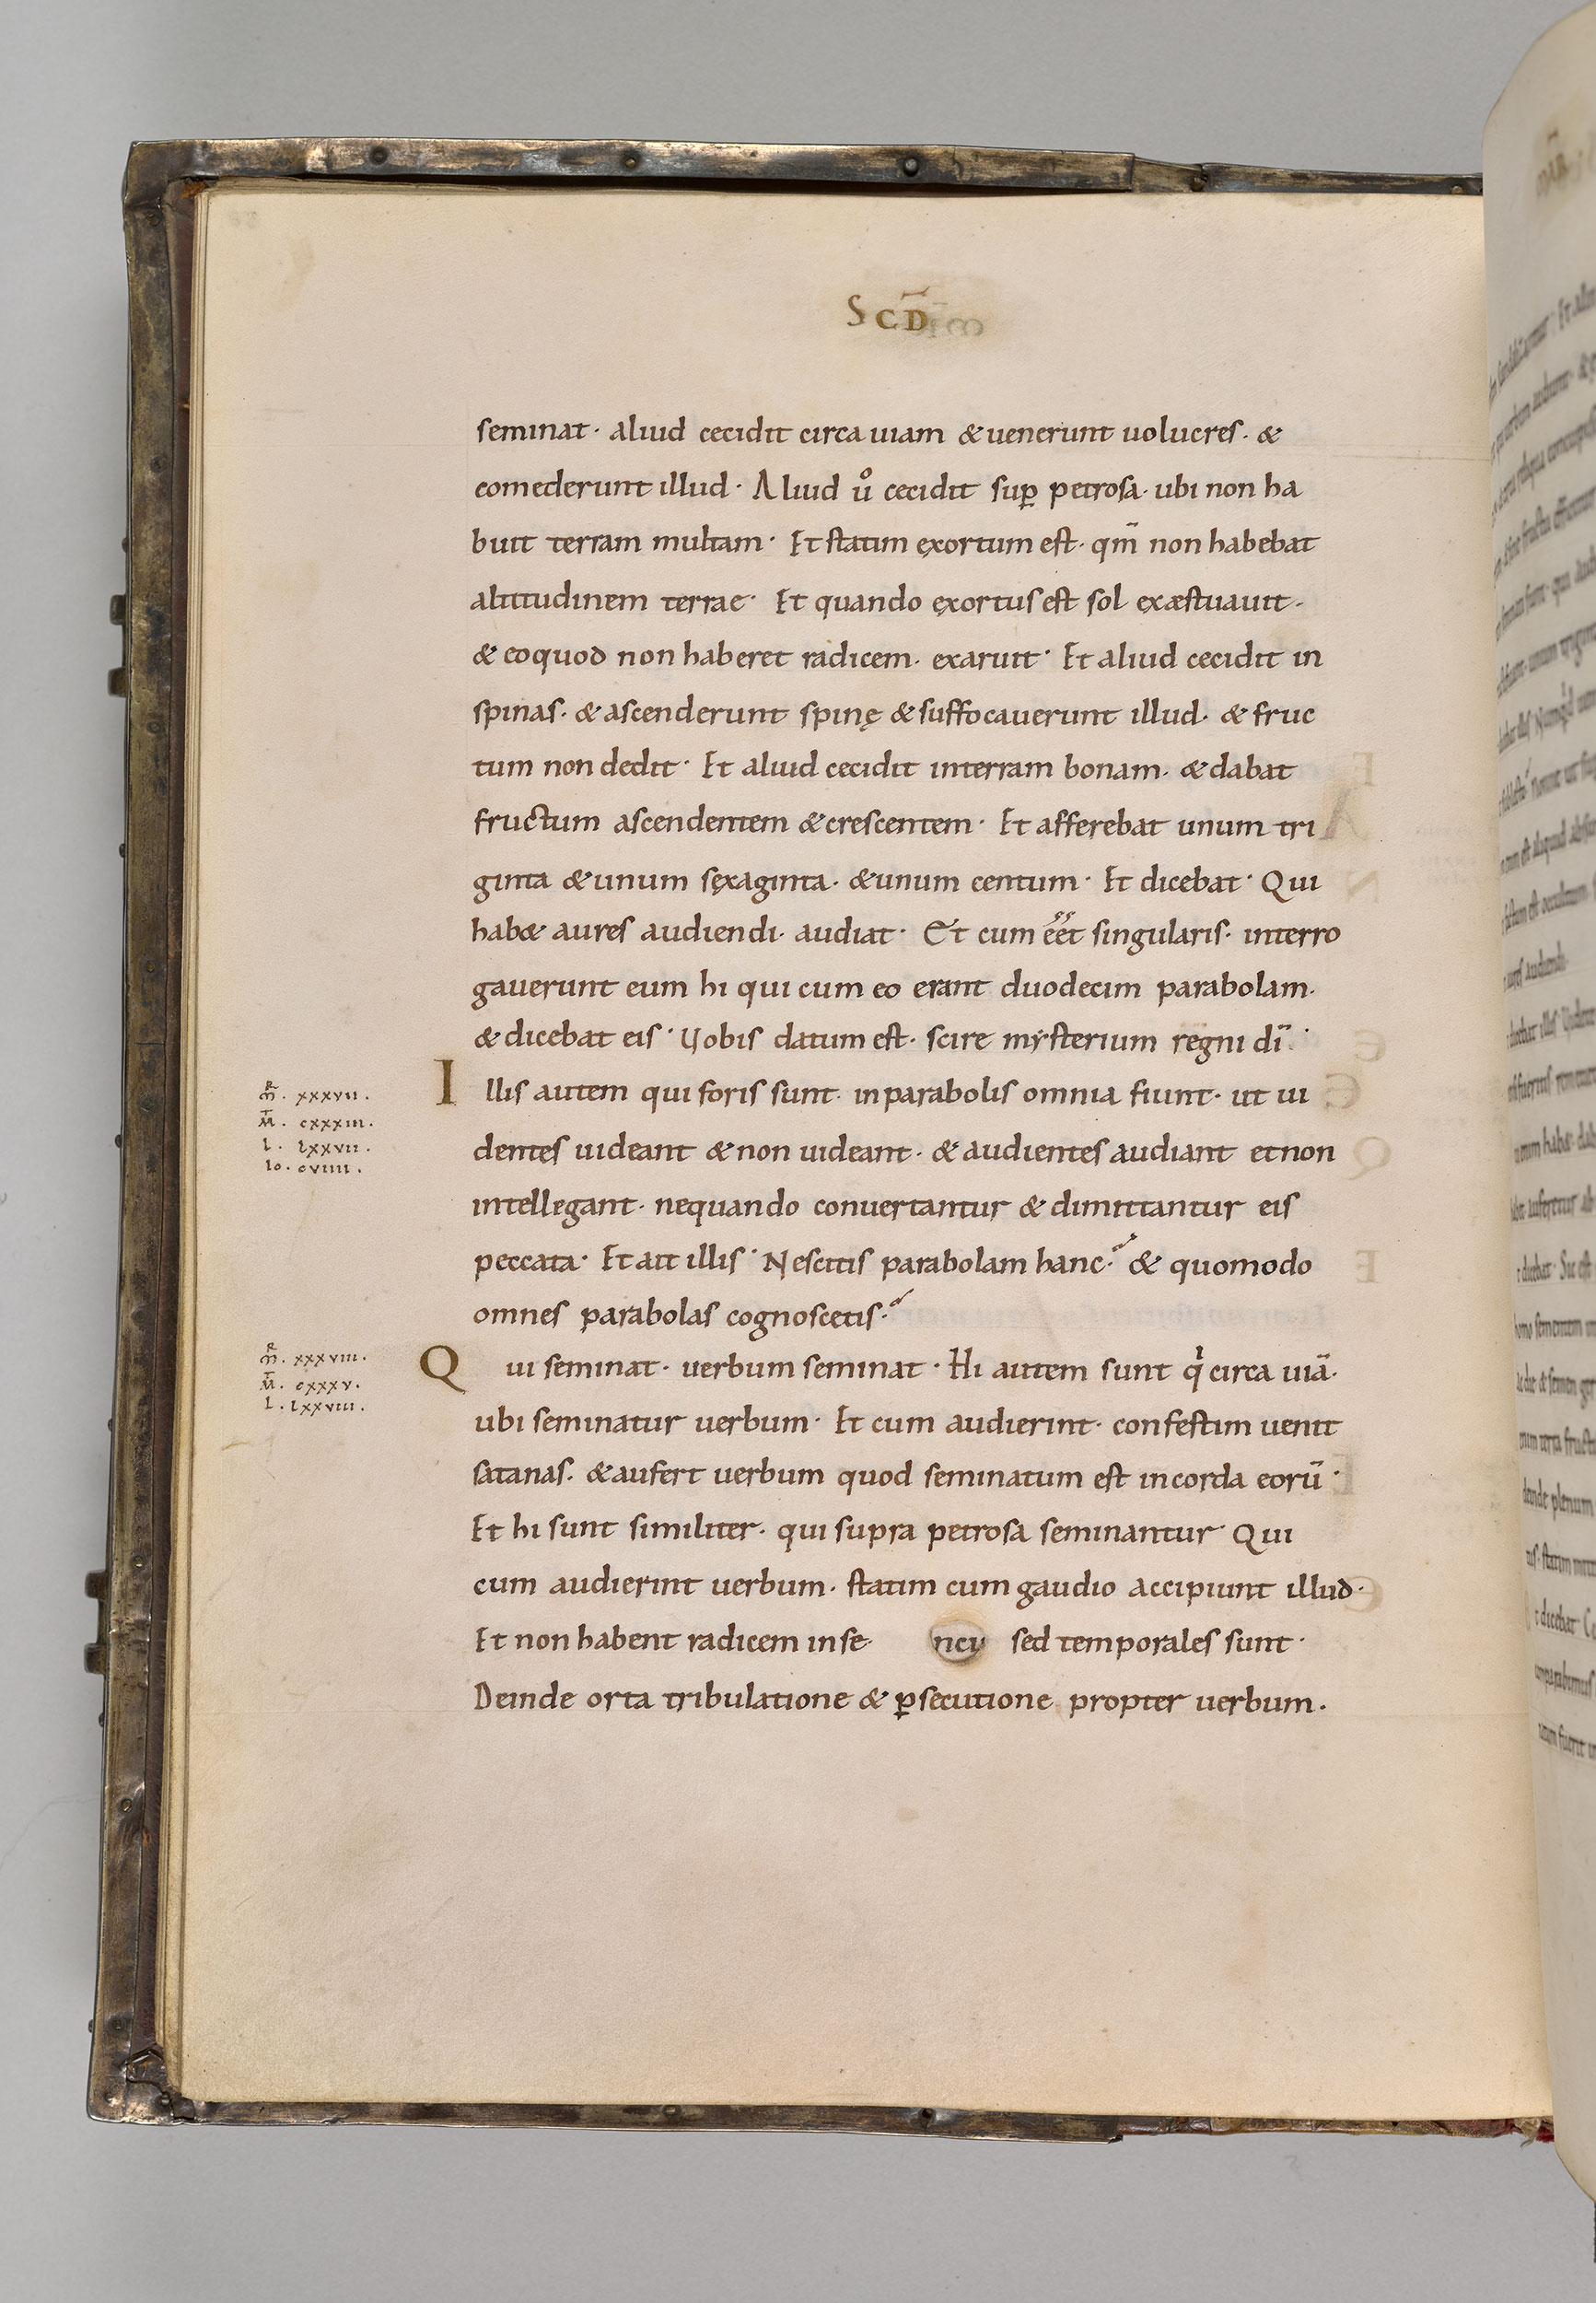 SCD̅
seminat· aliud cecidit circa uiam & uenerunt uolucres· &
comederunt illud· Aliud uͦ cecidit suꝑ petrosa· ubi non ha
buit terram multam· Et statim exortum est· qm̅ non habebat
altitudinem terrae· Et quando exortus est sol exæstuauit·
& eo quod non haberet radicem· exaruit· Et aliud cecidit in
spinas· & ascenderunt spinę & suffocauerunt illud· & fruc
tum non dedit· Et aliud cecidit in terram bonam· & dabat
fructum ascendentem & crescentem· Et afferebat unum tri
ginta & unum sexaginta· & unum centum· Et dicebat· Qui
hab& aures audiendi· audiat· Et cum eet singularis· interro
gauerunt eum hi qui cum eo erant duodecim parabolam·
& dicebat eis· Uobis datum est· scire mysterium regni di̅·
m̅R· xxxvii·
M̅· cxxxiii·
l· lxxvii·
Io· cviiii·
Illis autem qui foris sunt· in parabolis omnia fiunt· ut ui
dentes uideant & non uideant· & audientes audiant et non
intellegant· nequando conuertantur & dimittantur eis
peccata· Et ait illis· Nescitis parabolam hanc? & quomodo
omnes parabolas cognoscetis?
m̅R· xxxviii·
M̅· cxxxv·
l· lxxviii·
Qui seminat· uerbum seminat· Hi autem sunt qͥ circa uia̅·
ubi seminatur uerbum· Et cum audierint· confestim uenit
satanas· & aufert uerbum quod seminatum est in corda eoru̅·
Et hi sunt similiter· qui supra petrosa seminantur· Qui
cum audierint uerbum· statim cum gaudio accipiunt illud·
Et non habent radicem in se· sed temporales sunt·
Deinde orta tribulatione & ꝑsecutione propter uerbum·